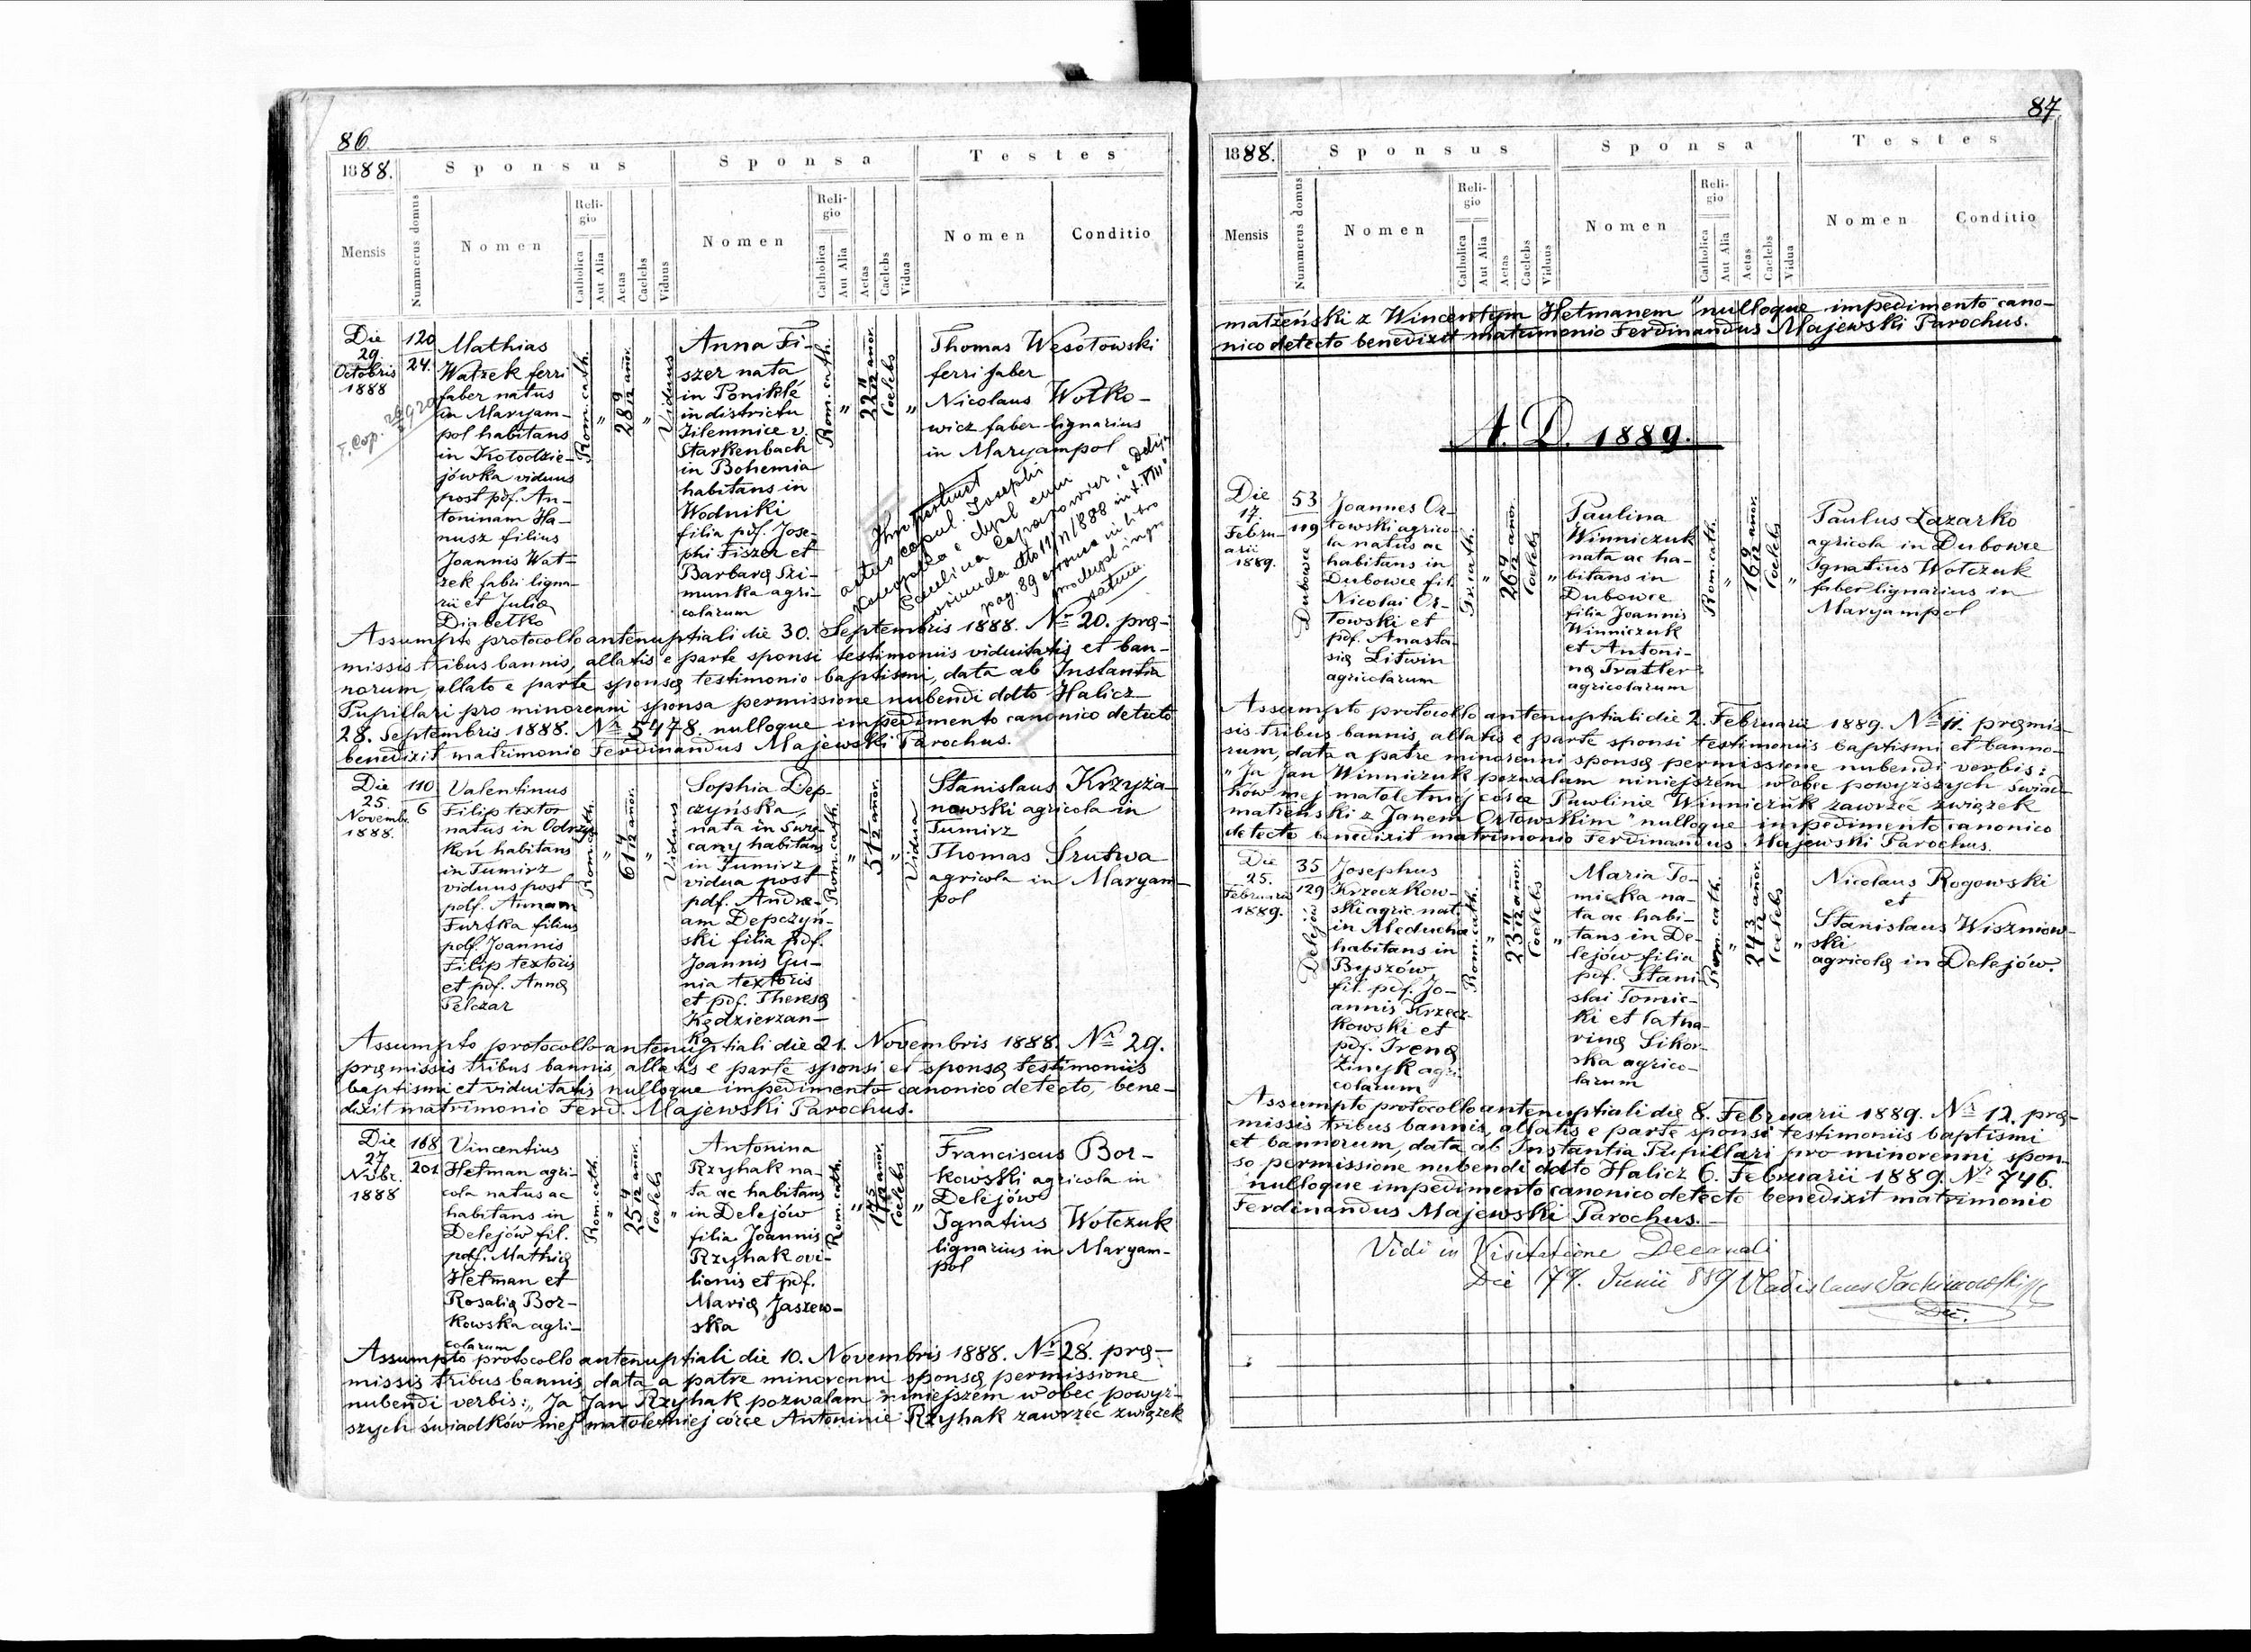 86.
1888.
Sponsus
Sponsa
Testes
Mensis
Nummerus domus
Nomen
Religio
Catholica
Aut Alia
Aetas
Caelebs
Viduus
Nomen
Religio
Catholica
Aut Alia
Aetas
Caelebs
Vidua
Nomen
Conditio
Die
29.
Octobris
1888
120
24.
Mathias
Watzek ferri
faber natus
in Maryam-
pol habitans
in Kołodzie-
jówka viduus
post pdf. An-
toninam Ha-
nusz filius
Joannis Wat-
zek fabri ligna-
rii et Julię
Diabełko
Rom. cath.
"
28 9/12 anor.
"
Viduus
Anna Fi-
szer nata
in Poniklé
in districtu
Jilemnice v.
Starkenbach
in Bohemia
habitans in
Wodniki
filia pdf. Jose-
phi Fiszer et
Barbarę Szi-
munka agri-
colarum
Rom. cath.
"
22 11/12 anor.
Coelebs
"
Thomas Wesołowski
ferri faber
Nicolaus Wołko-
wicz faber lignarius
in Maryampol
actus copul. Josephi
pag. 89 in libro
Assumpto protocollo antenuptiali die 30. Septembris 1888. Nr 20. prę-
missis tribus bannis, allatis e parte sponsi testimoniis viduitatis et ban-
norum, allato e parte sponsę testimonio baptismi, data ab Instantia
Pupillari pro minorenni sponsa permissione nubendi ddto Halicz
28. Septembris 1888. Nr 5478. nulloque impedimento canonico detecto
benedixit matrimonio Ferdinandus Majewski Parochus.
Die
25.
Novemb.
1888.
110
6
Valentinus
Filip textor
natus in Odrzy-
koń habitans
in Tumirz
viduus post
pdf. Annam
Furtka filius
pdf. Joannis
Filip textoris
et pdf. Annę
Pelczar
Rom. cath.
"
61 9/12 anor.
"
Viduus
Sophia Dep-
czyńska,
nata in Swi-
cany habitans
in Tumirz
vidua post
pdf. Andre-
am Depczyń-
ski filia pdf.
Joannis Gu-
nia textoris
et pdf. Theresę
Kędzierzan-
ka
Rom. cath.
"
51 1/12 anor.
"
Vidua
Stanislaus Krzyża-
nowski agricola in
Tumirz
Thomas Śrutwa
agricola in Maryam-
pol
Assumpto protocollo antenuptiali die 21. Novembris 1888. Nr 29.
pręmissis tribus bannis, allatis e parte sponsi et sponsę testimoniis
baptismi et viduitatis nulloque impedimento canonico detecto, bene-
dixit matrimonio Ferd. Majewski Parochus.
Die
27.
Nvbr.
1888
168
201
Vincentius
Hetman agri-
cola natus ac
habitans in
Delejów fil.
pdf. Mathię
Hetman et
Rosalię Bor-
kowska agri-
colarum
Rom. cath.
"
25 9/12 anor.
Coelebs
"
Antonina
Rzyhak na-
ta ac habitans
in Delejów
filia Joannis
Rzyhak ovi-
lionis et pdf.
Marię Jaszew-
ska
Rom. cath.
"
17 5/12 anor.
Coelebs
"
Franciscus Bor-
kowski agricola in
Delejów
Ignatius Wołczuk
lignarius in Maryam-
pol
Assumpto protocollo antenuptiali die 10. Novembris 1888. Nr 28. prę-
missis tribus bannis, data a patre minorenni sponsę permissione
nubendi verbis: „Ja Jan Rzyhak pozwalam niniejszém wobec powyż-
szych świadków mej małoletniej córce Antoninie Rzyhak zawrzéć związek
87.
1888.
Sponsus
Sponsa
Testes
Mensis
Nummerus domus
Nomen
Religio
Catholica
Aut Alia
Aetas
Caelebs
Viduus
Nomen
Religio
Catholica
Aut Alia
Aetas
Caelebs
Vidua
Nomen
Conditio
małżeński z Wincentym Hetmanem" nulloque impedimento cano-
nico detecto benedixit matrimonio Ferdinandus Majewski Parochus.
A. D. 1889.
Die
17.
Febru-
arii
1889.
53
119
Dubowce
Joannes Or-
łowski agrico-
la natus ac
habitans in
Dubowce fil.
Nicolai Or-
łowski et
pdf. Anasta-
się Litwin
agricolarum
Gr. cath.
"
26 9/12 anor.
Coelebs
"
Paulina
Winniczuk
nata ac ha-
bitans in
Dubowce
filia Joannis
Winniczuk
et Antoni-
nę Tratler
agricolarum
Rom. cath.
"
16 9/12 anor.
Coelebs
"
Paulus Łazarko
agricola in Dubowce
Ignatius Wołczuk
faber lignarius in
Maryampol
Assumpto protocollo antenuptiali die 2. Februarii 1889. Nr 11. pręmis-
sis tribus bannis, allatis e parte sponsi testimoniis baptismi et banno-
rum, data a patre minorenni sponsę permissione nubendi verbis:
„Ja Jan Winniczuk pozwalam niniejszém wobec powyższych świad-
ków mej małoletniéj córce Pawlinie Winniczuk zawrzéć związek
małżeński z Janem Orłowskim" nulloque impedimento canonico
detecto benedixit matrimonio Ferdinandus Majewski Parochus.
Die
25.
Februarii
1889.
35
129
Delejów
Josephus
Krzeczkow-
ski agric. nat.
in Meducha
habitans in
Byszów
fil. pdf. Jo-
annis Krzecz-
kowski et
pdf. Irenę
Zinyk agri-
colarum
Rom. cath.
"
23 11/12 anor.
Coelebs
"
Maria To-
micka na-
ta ac habi-
tans in De-
lejów filia
pdf. Stani-
slai Tomic-
ki et Catha-
rinę Sikor-
ska agrico-
larum
Rom. cath.
"
24 3/12 anor.
Coelebs
"
Nicolaus Rogowski
et
Stanislaus Wiszniow-
ski
agricolę in Delejów.
Assumpto protocollo antenuptiali die 8. Februarii 1889. Nr 12. prę-
missis tribus bannis, allatis e parte sponsi testimoniis baptismi
et bannorum, data ab Instantia Pupillari pro minorenni spon-
so permissione nubendi ddto Halicz 6. Februarii 1889. Nr 746.
nulloque impedimento canonico detecto benedixit matrimonio
Ferdinandus Majewski Parochus.
Vidi in Visitatione Decanali
Die 17. Junii 889 Vladislaus
Dec.